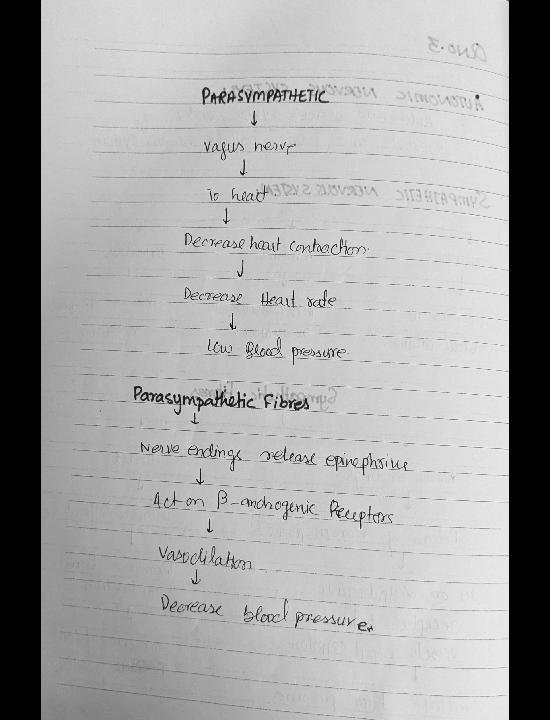 PARASYMPATHETIC
↓
Vagus nerve
↓
To heart
↓
Decrease heart contraction.
↓
Decrease Heart rate
↓
low Blood pressure.
Parasympathetic Fibres
↓
Nerve endings release epinephrine
↓
Act on β-androgenic Receptors
↓
Vasodilation
↓
Decrease blood pressure.